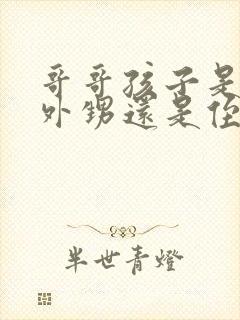 哥哥孩子是
外甥還是侄
半世青燈